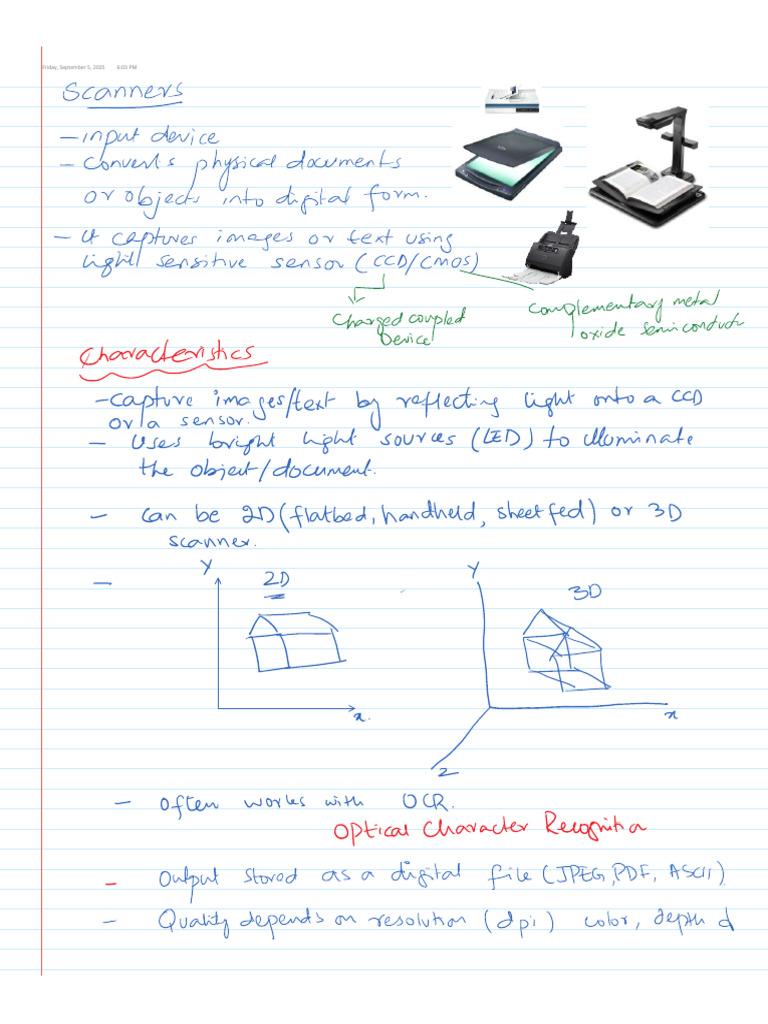 Friday, September 5, 2025 6:03 PM
Scanners
– input device
– converts physical documents
or objects into digital form.
– It captures images or text using
light sensitive sensor (CCD/CMOS)
Charged coupled
Device
Complementary metal
oxide semiconductor
Characteristics
– capture images/text by reflecting light onto a CCD
or a sensor.
– Uses bright light sources (LED) to illuminate
the object/document.
– can be 2D (flatbed, handheld, sheetfed) or 3D
scanner.
–
Y 2D
x.
Y 3D
x
Z
– often works with OCR.
Optical Character Recognitio
– Output stored as a digital file (JPEG, PDF, ASCII)
– Quality depends on resolution (dpi) color, depth d